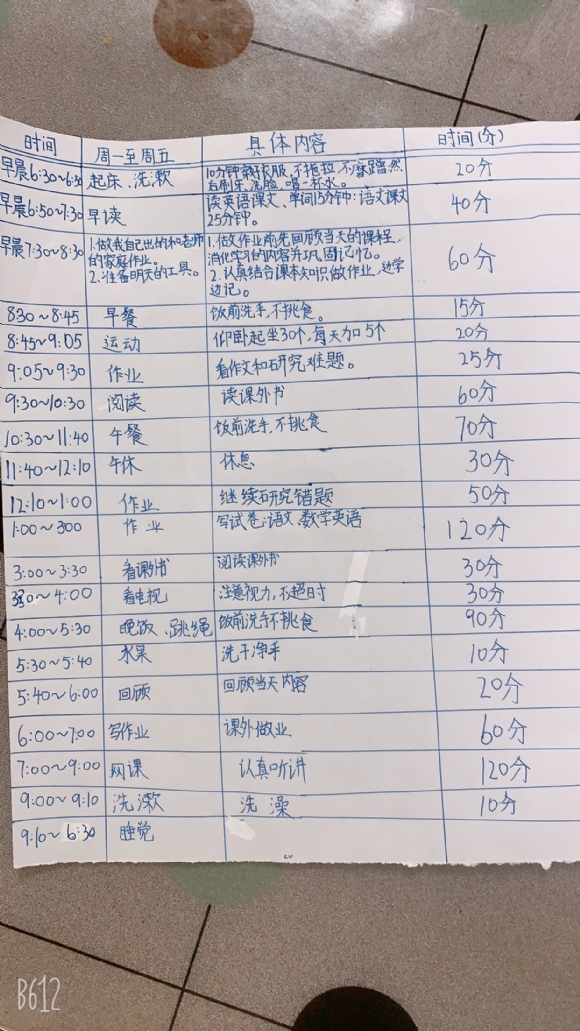 时间 周一至周五 具体内容 时间(分)
早晨6:30~6:50 起床、洗漱 10分钟穿衣服,不拖拉,不磨蹭然后刷牙、洗脸、喝一杯水。 20分
早晨6:50~7:30 早读 读英语课文、单词15分钟:语文课文25分钟。 40分
早晨7:30~8:30 1.做我自己出的和老师的家庭作业。 2.准备明天的工具。 1.做作业前先回顾当天的课程,消化学习的内容并巩固记忆。 2.认真结合课本知识做作业,边学边记。 60分
830~8:45 早餐 饭前洗手,不挑食。 15分
8:45~9:05 运动 仰卧起坐30个,每天加5个 20分
9:05~9:30 作业 看作文和研究难题。 25分
9:30~10:30 阅读 读课外书 60分
10:30~11:40 午餐 饭前洗手,不挑食 70分
11:40~12:10 午休 休息 30分
12:10~1:00 作业 继续研究错题 50分
1:00~300 作业 写试卷:语文 数学英语 120分
3:00~3:30 看课外书 阅读课外书 30分
330~4:00 看电视 注意视力,不超时 30分
4:00~5:30 晚饭、跳绳 饭前洗手不挑食 90分
5:30~5:40 水果 洗干净手 10分
5:40~6:00 回顾 回顾当天内容 20分
6:00~7:00 写作业 课外做业 60分
7:00~9:00 网课 认真听讲 120分
9:00~9:10 洗漱 洗澡 10分
9:10~6:30 睡觉
B612